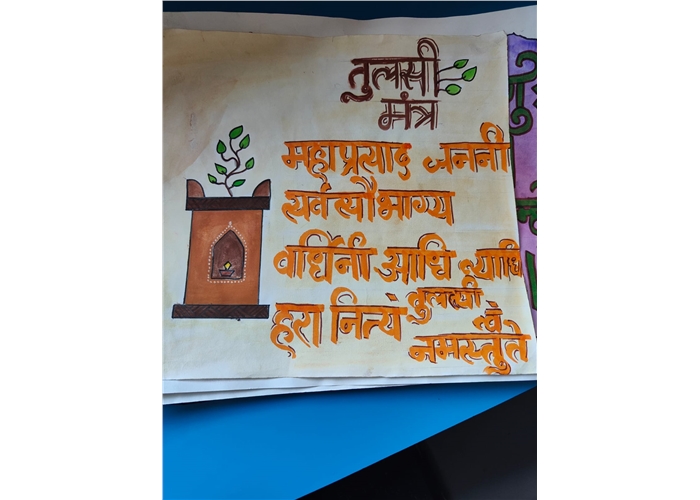 तुलसी
मंत्र
महाप्रत्याद जननी
सर्वसौभाग्य
वर्धिनी आधि व्याधि
हरा नित्यं तुलसी
त्वं
नमस्तुते